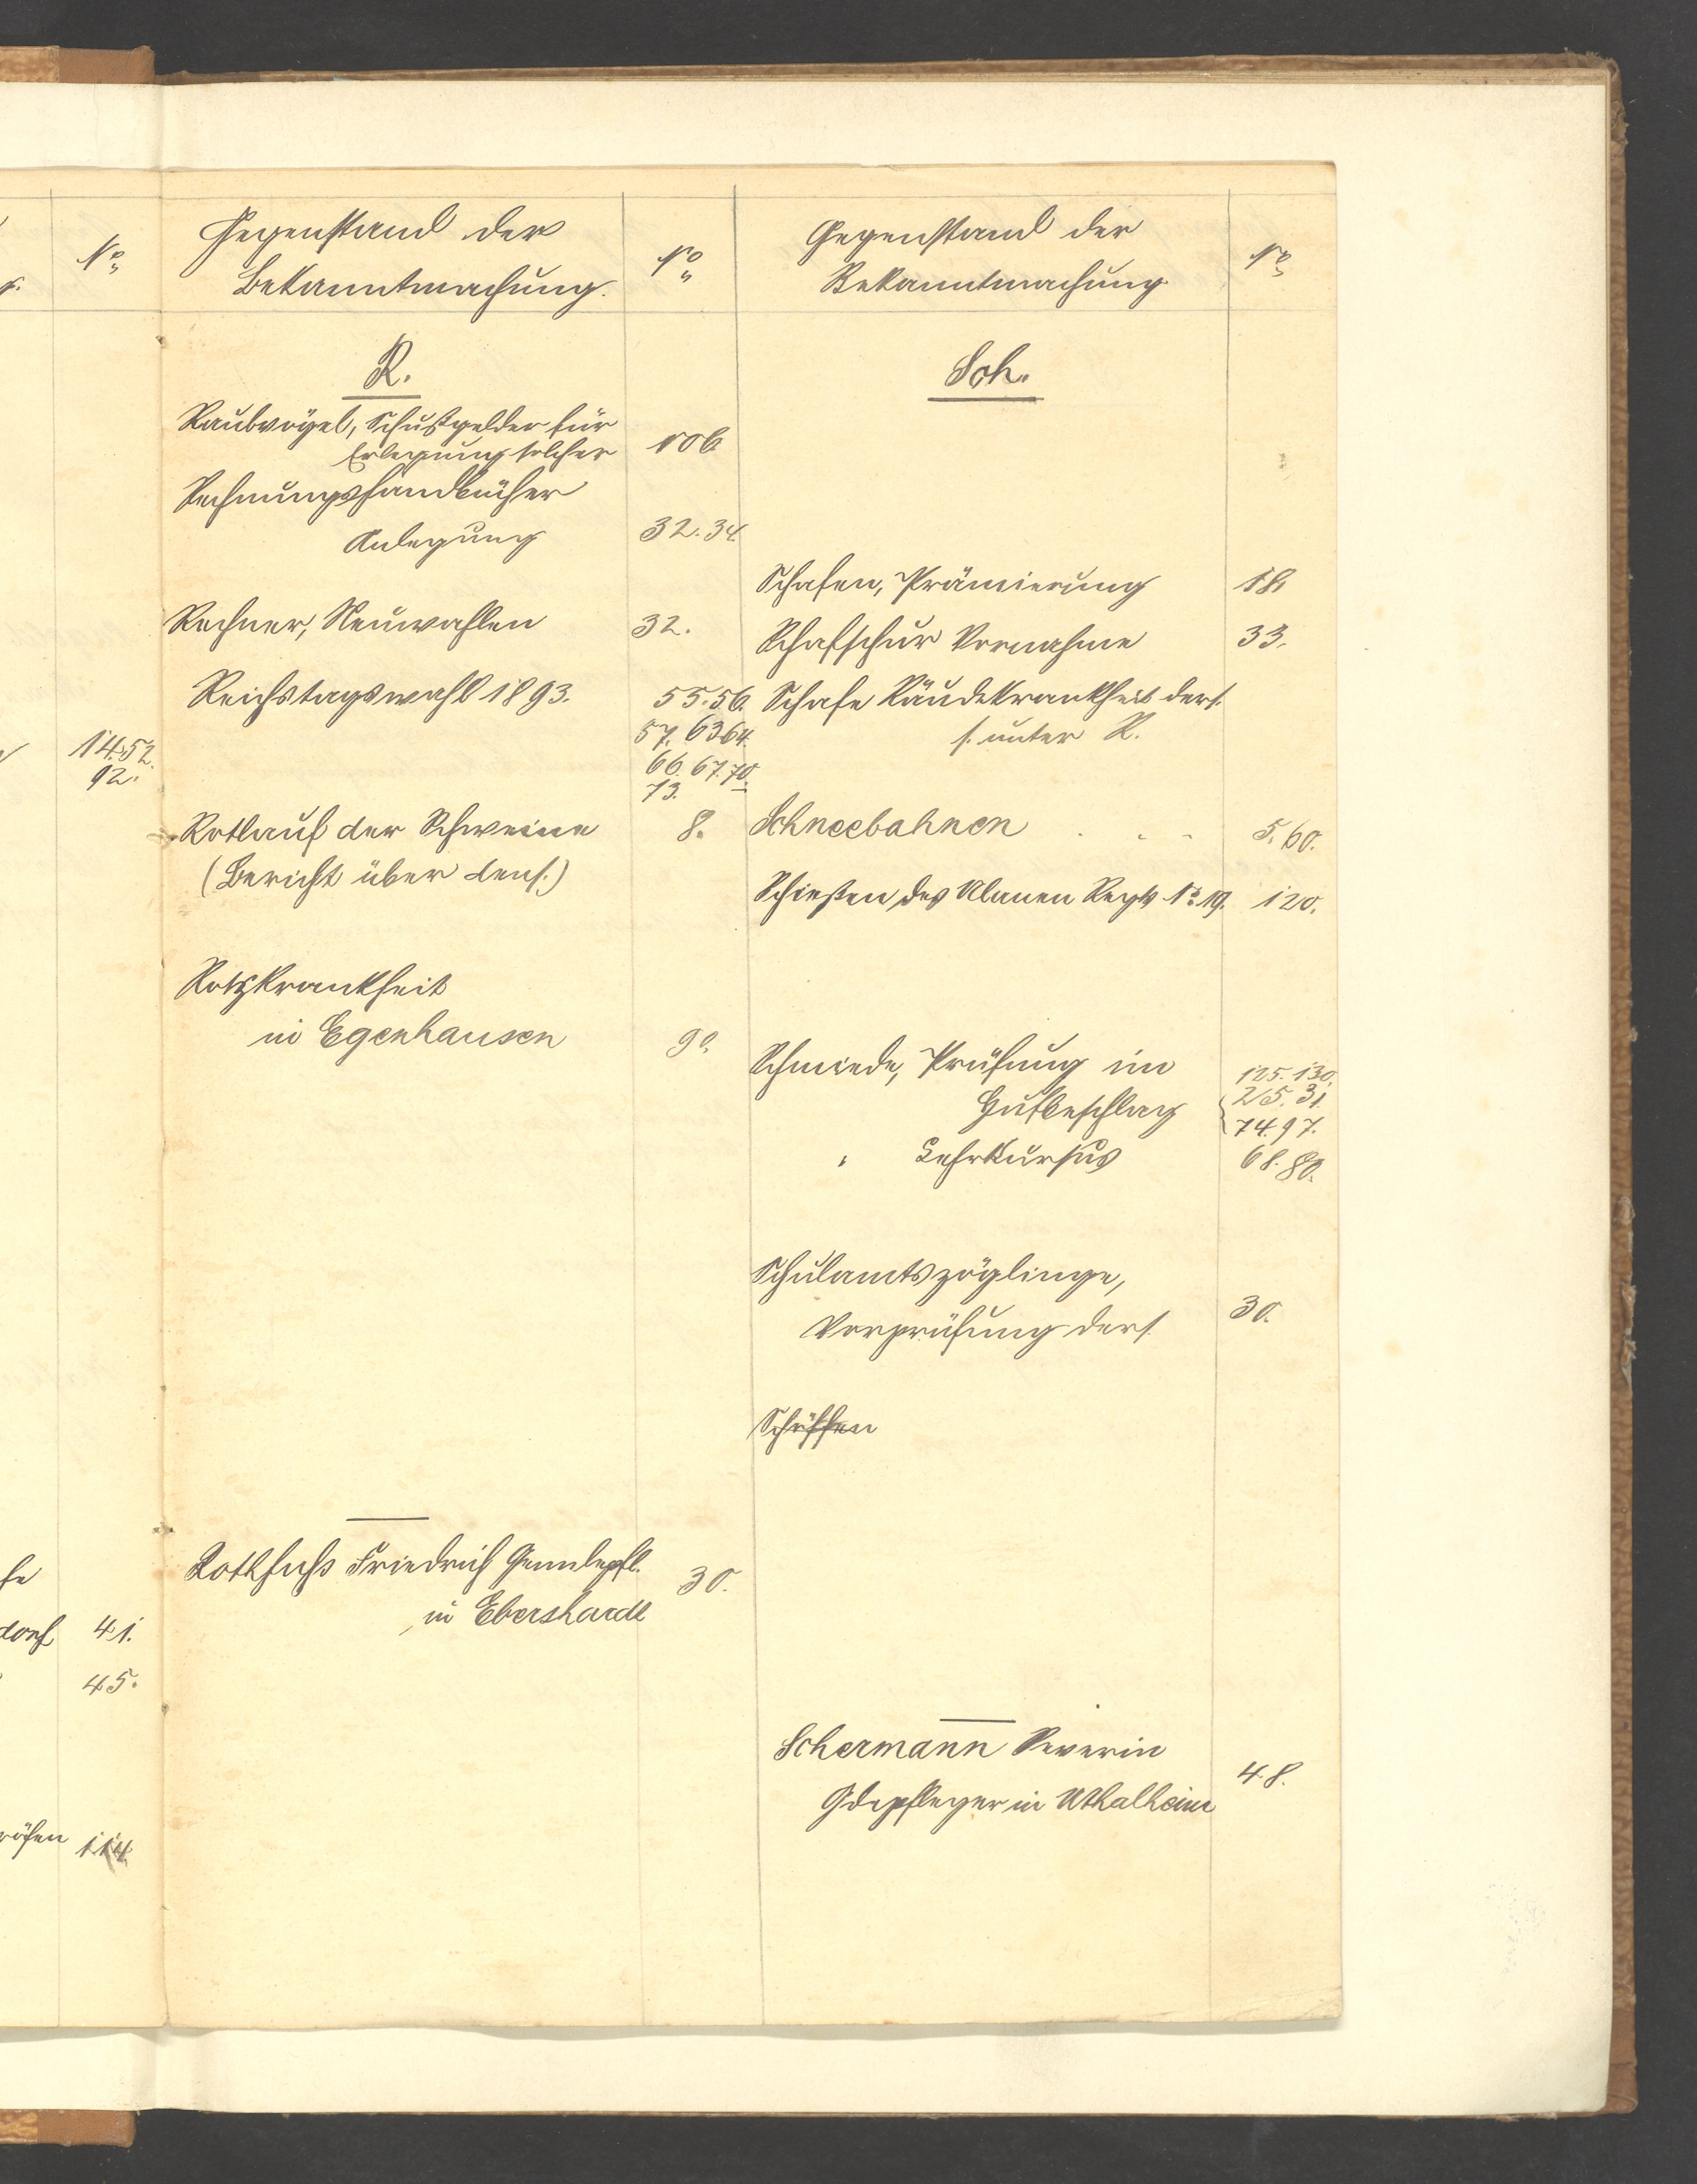 No
14. 52.
92.
dorf 41.
45.
114.
Gegenstand der
Bekanntmachung.
No
R.
Raubvögel, Schußgelder für
Erlegung solcher 106
Rechnungshandbücher
Anlegung 32. 34.
Rechner, Neuwahlen 32.
Reichstagswahl 1893. 55. 56.
57. 63 64.
66. 67. 70.
73.
Rotlauf der Schweine 8.
(Bericht über dens.)
Rotzkrankheit
in Egenhausen 90.
Rothfuß Friedrich Gemdepfl.
in Ebershardt 30.
Gegenstand der
Bekanntmachung
No
Sch.
Schafen, Prämierung 18.
Schafschur Vornahme 33.
Schafe Räudekrankheit ders.
s. unter R.
Schneebahnen . . . 5. 60.
Schießen des Ulanen Regts No 19. 120.
Schmiede, Prüfung im 125. 130.
Hufbeschlag 25. 31.
74. 97.
" Lehrkursus 68. 80.
Schulamtszöglinge,
Vorprüfung ders. 30.
Schöffen
Schermann Severin
Gdepfleger in Uthalheim 48.